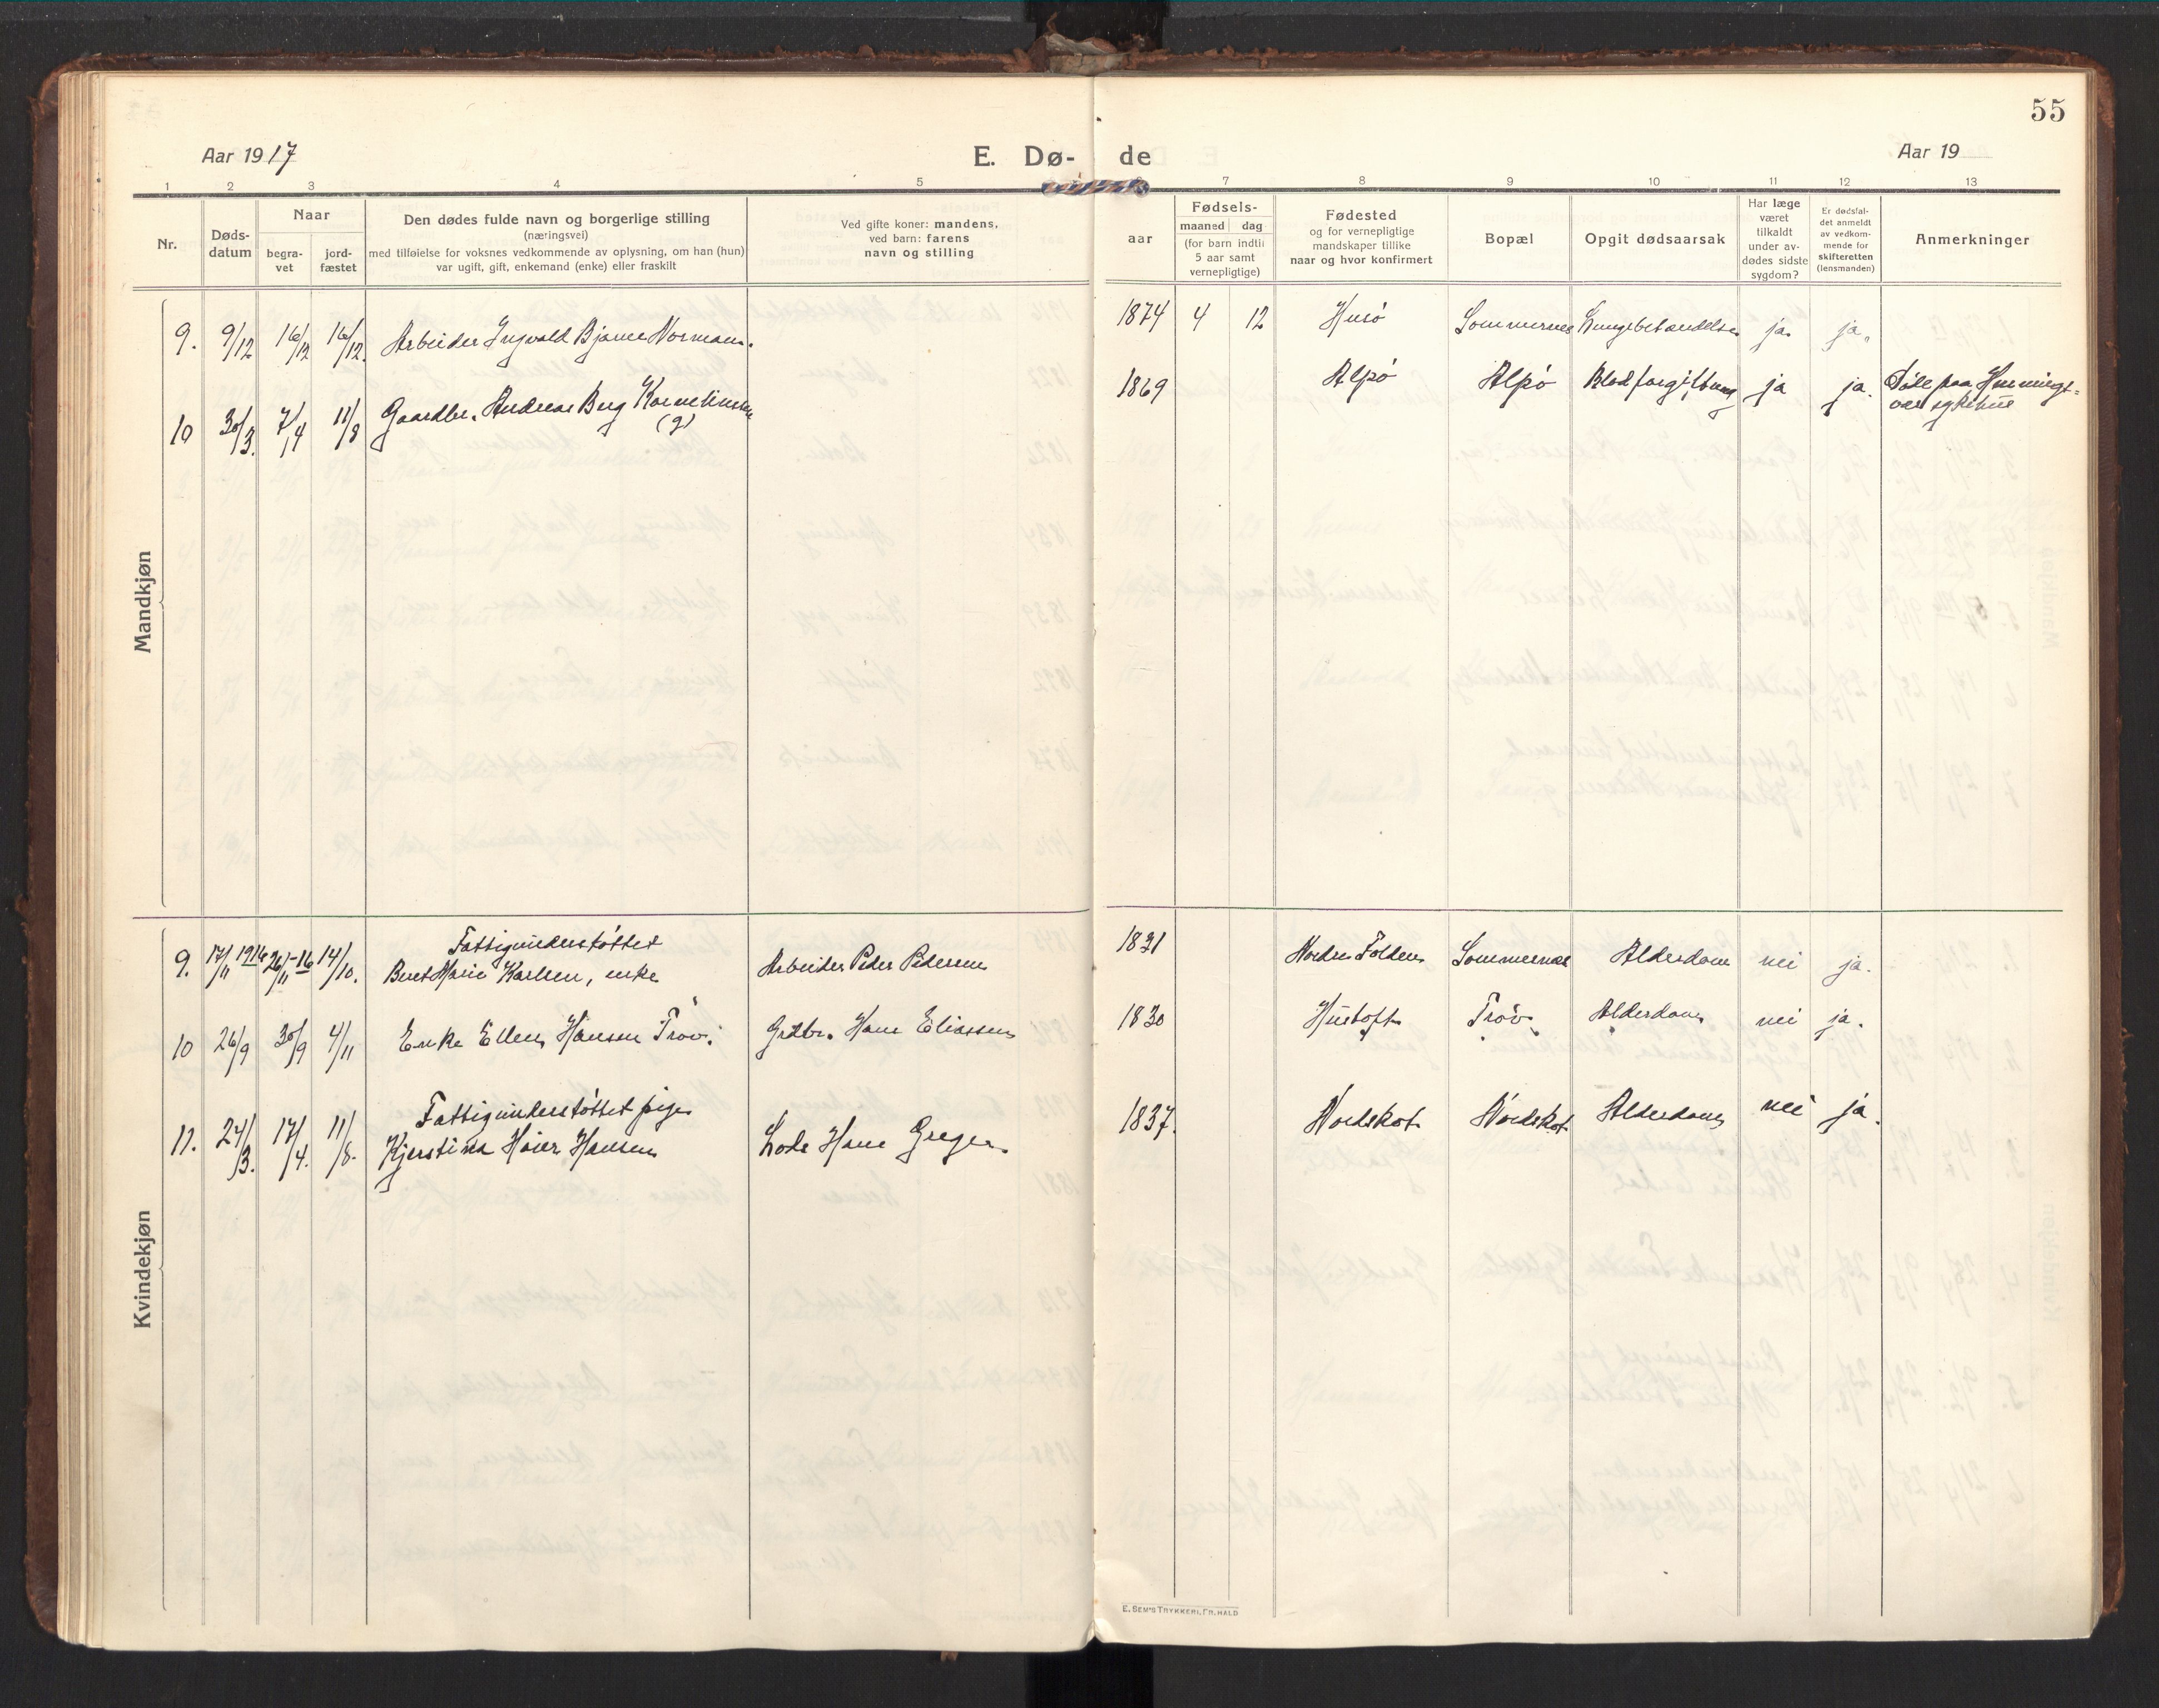 55
Aar 1917
E. Dø- de
Aar 19
1 2 3 4 5 6 7 8 9 10 11 12 13
Nr.
Døds-
datum
Naar
begra-
vet
jord-
fæstet
Den dødes fulde navn og borgerlige stilling
(næringsvei)
med tilføielse for voksnes vedkommende av oplysning, om han (hun)
var ugift, gift, enkemand (enke) eller fraskilt
Ved gifte koner: mandens,
ved barn: farens
navn og stilling
aar
Fødsels-
maaned dag
(for barn indtil
5 aar samt
vernepligtige)
Fødested
og for vernepligtige
mandskaper tillike
naar og hvor konfirmert
Bopæl
Opgit dødsaarsak
Har læge
været
tilkaldt
under av-
dødes sidste
sygdom?
Er dødsfal-
det anmeldt
av vedkom-
mende for
skifteretten
(lensmanden)
Anmerkninger
Mandkjøn
9. 9/12 16/12 16/12. Arbeider Ingvald Bjarne Normann. 1874 4 12 Husö Sommernes Lungebetændelse ja. ja.
10 30/3. 7/4 11/8 Gaardbr. Andreas Berg Kornelinssen 1869 Alpö Alpö Blodforgiftning ja ja. Döde paa Hennings-
(g) vær sykehus
Kvindekjøn
Fattigunderstöttet
9. 17/11 1916 26/11-16 14/10. Beret Marie Karlsen, enke Arbeider Peder Pedersen 1831 Nordre Folden Sommernes Alderdom nei ja.
10 26/9 30/9 4/11 Enke Ellen Hansen Tröv. Grdbr. Hans Eliassen 1830 Hustoft Tröv Alderdom nei ja.
Fattigunderstöttet pige
11. 24/3. 17/4. 11/8. Kjerstina Høier Hansen Lods Hans Greger 1837. Nordskot Nordskot Alderdom nei ja.
E. SEM'S TRYKKERI, FR.HALD